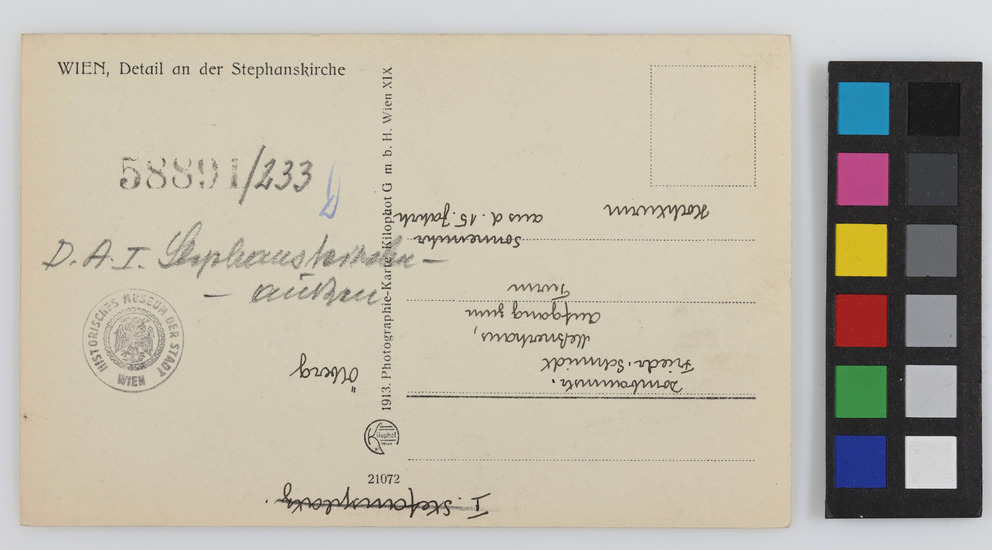 WIEN, Detail an der Stephanskirche
58891/233
D.A.I. Stephanskirche –
– außen
HISTORISCHES MUSEUM DER STADT WIEN
1913. Photographie-Karte Kilophot G m. b. H. Wien XIX
Kilophot
Wien
21072
I. Stefansplatz.
Ölberg
Dombaumstr.
Friedr. Schmidt
Meßnerhaus,
Aufgang zum
Turm
Sonnenuhr
aus d. 15. Jahrh.
Hochturm